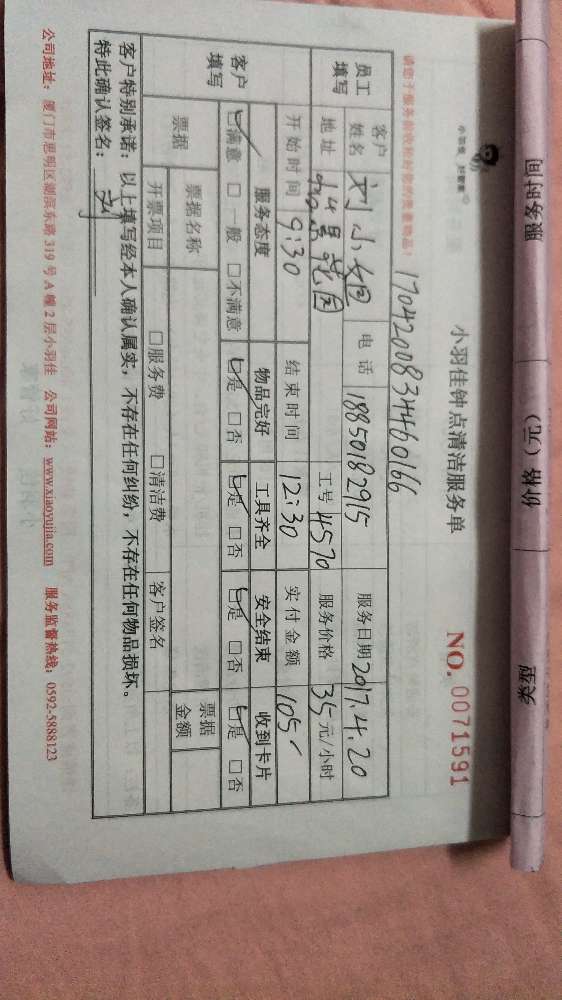 服务时间
价格（元）
类型
小羽佳钟点清洁服务单
NO. 0071591
1704200834460166
请您于服务前收拾好您的贵重物品！
员工填写
客户姓名 刘小姐 电话 18850182915 服务日期 2017.4.20
地址 花园 工号 4570 服务价格 35元/小时
开始时间 9:30 结束时间 12:30 实付金额 105
客户填写
服务态度 物品完好 工具齐全 安全结束 收到卡片
☑满意 □一般 □不满意 ☑是 □否 ☑是 □否 ☑是 □否 ☑是 □否
票据 票据名称 票据金额
开票项目 □服务费 □清洁费 客户签名
客户特别承诺：以上填写经本人确认属实，不存在任何纠纷，不存在任何物品损坏。
特此确认签名：刘
公司地址：厦门市思明区湖滨东路319号A幢2层小羽佳 公司网站：www.xiaoyujia.com 服务监督热线：0592-5888123